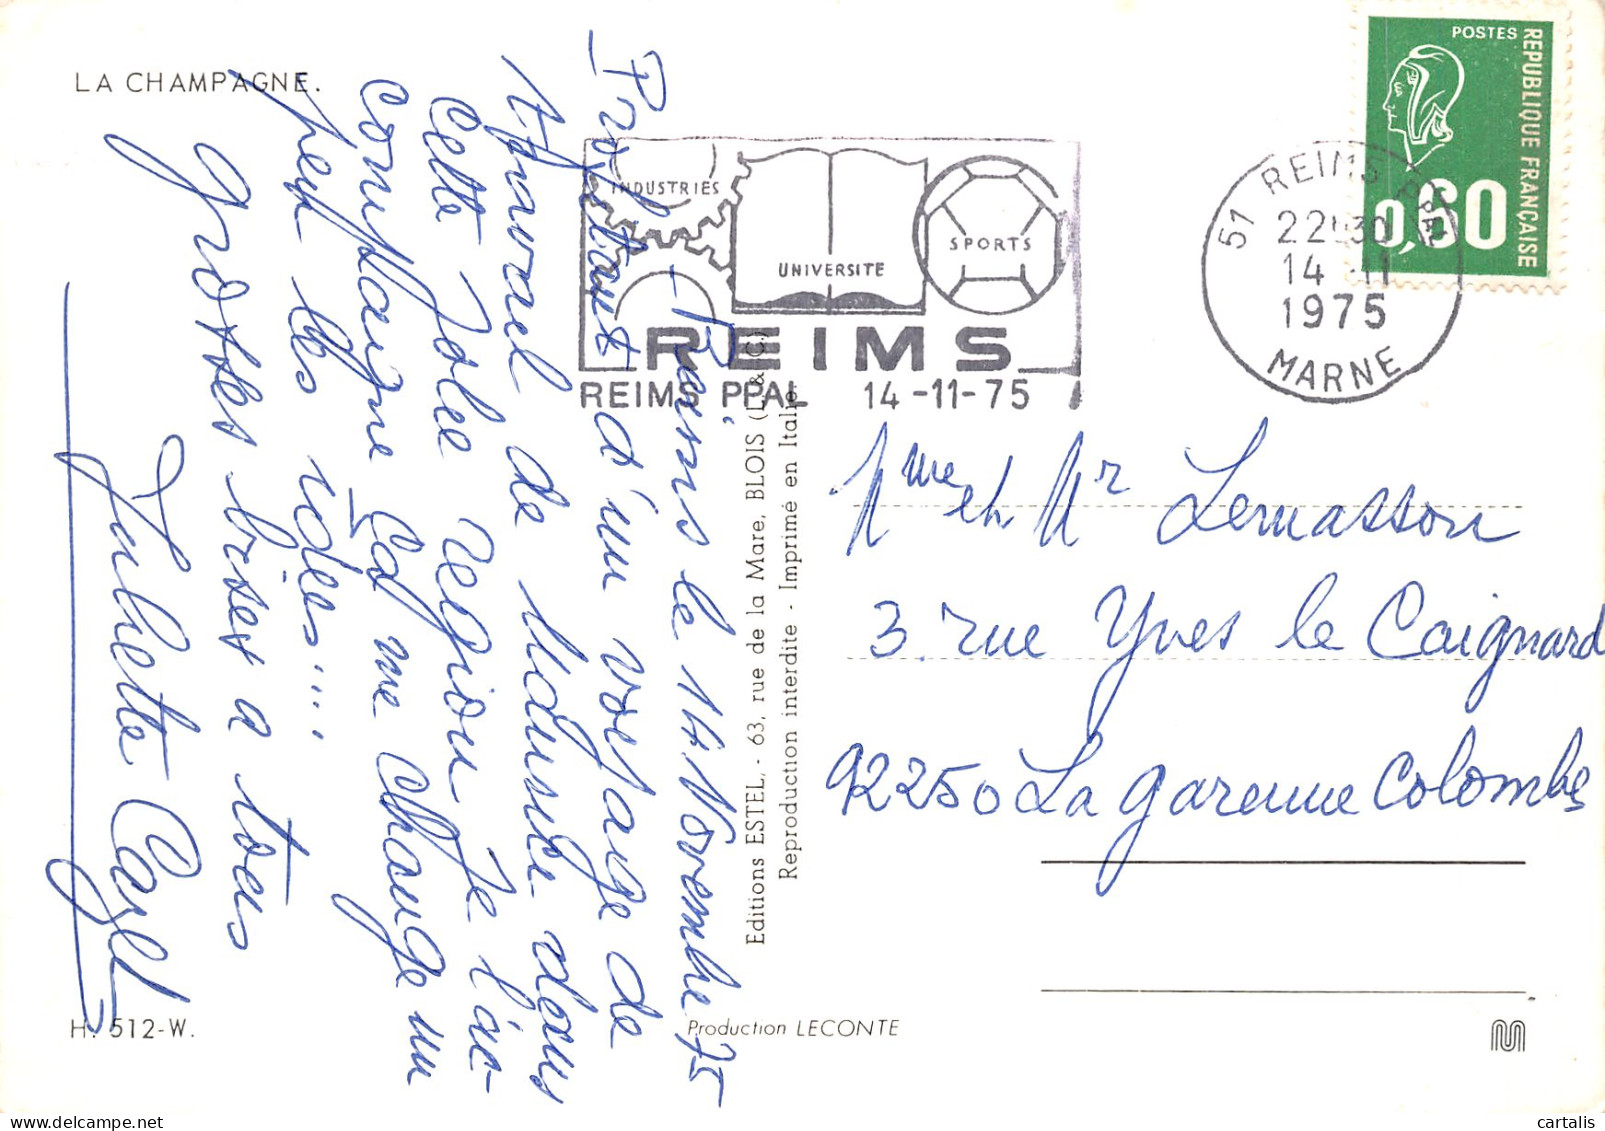 LA CHAMPAGNE.
Reims le 14. Novembre 75
Profitant d'un voyage de
travail de Maurice dans
Cette Jolie région Je l'ac-
compagne Ça me change un
peu les idées....
grosses bises a tous
Juliette
H. 512-W.
Editions ESTEL, - 63, rue de la Mare, BLOIS (L&C)
Reproduction interdite - Imprimé en Italie
Production LECONTE
INDUSTRIES
UNIVERSITE
SPORTS
REIMS
REIMS PPAL 14-11-75
51 REIMS PPAL
22H30
14 -11
1975
MARNE
POSTES
REPUBLIQUE FRANÇAISE
0,60
Mme et Mr Lemasson
3. rue Yves le Caignard
92250 La garenne Colombes
cartalis